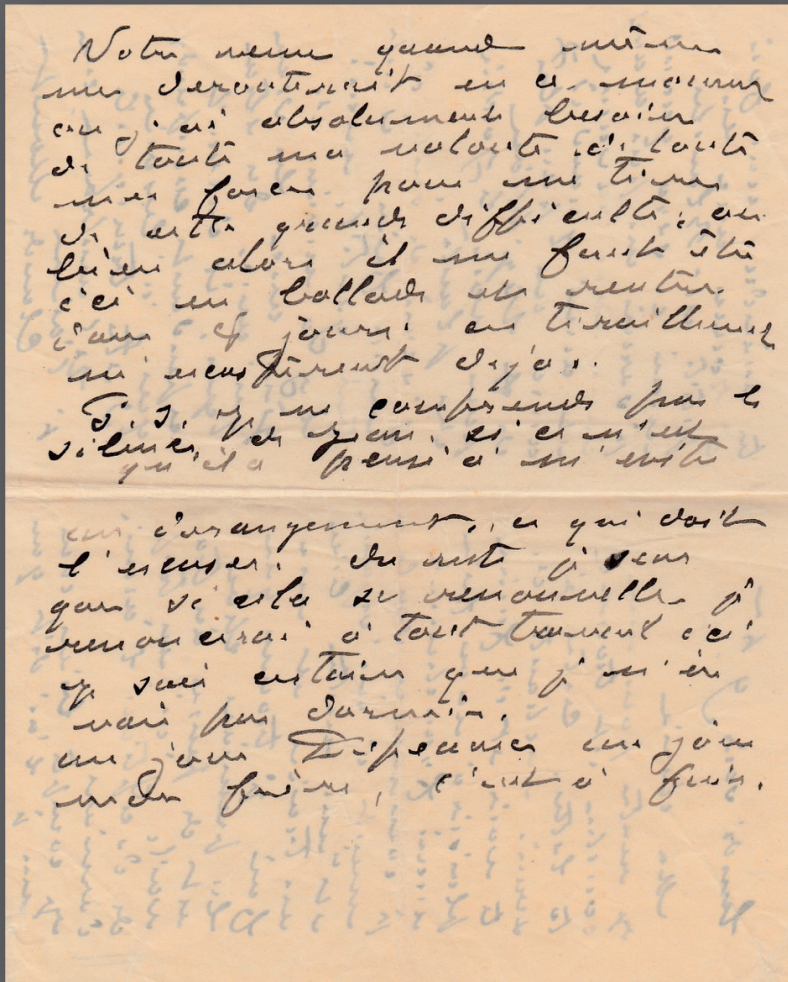 Votre venue quand même
me derouterait en ce moment
ou j'ai absolument besoin
de toute ma volonté, de toute
mes forces pour me tirer
de cette grande difficulté, ou
bien alors il me faut être
ici en ballade et rentrer
dans 8 jours. ces tiraillements
m'exaspèrent déjà.
Si je ne comprends pas le
silence de si ce n'est
qu'il a pensé à m'éviter
un derangement, ce qui doit
l'excuser. du reste je sens
que si cela se renouvelle je
renoncerai à tout travail ici
je suis certain que je n'en
vais pas dormir.
un jour un jour
mon frère, c'est à fuir.